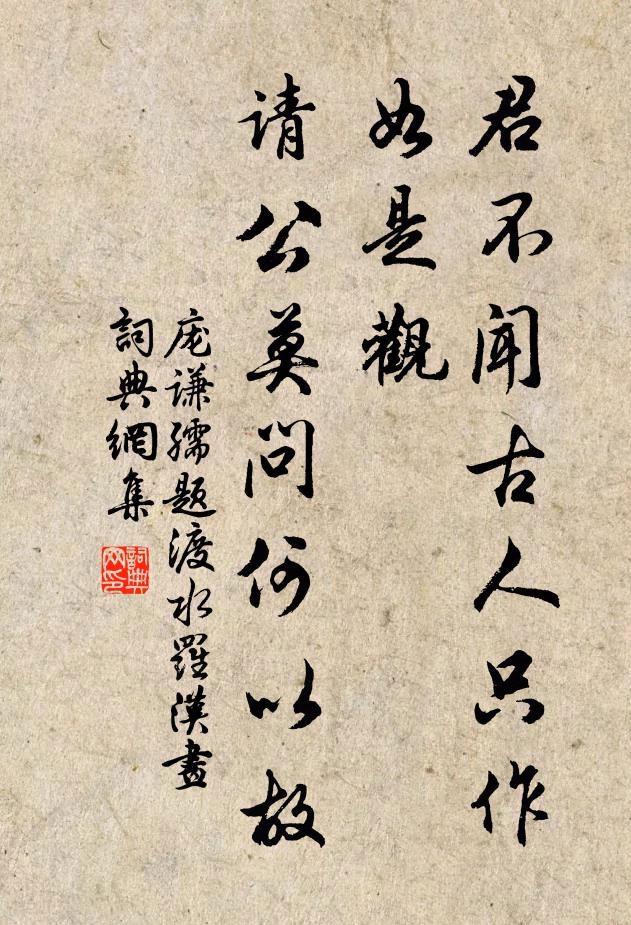 君不闻古人只作
如是觀
请公莫问何以故
庞谦孺题渡水羅漢畫
詞典網集
詞典网印